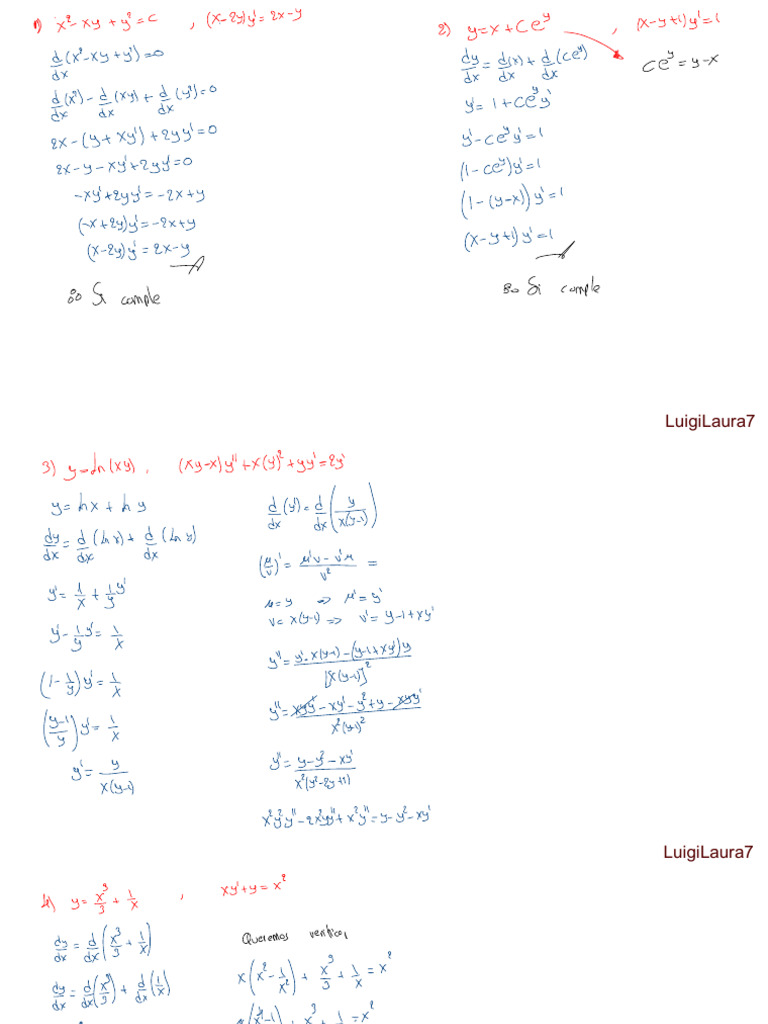 1) x² - xy + y² = c , (x-2y)y' = 2x-y
d/dx (x²-xy+y²) = 0
d/dx (x²) - d/dx (xy) + d/dx (y²) = 0
2x - (y + xy') + 2yy' = 0
2x - y - xy' + 2yy' = 0
-xy' + 2yy' = -2x + y
(-x+2y)y' = -2x+y
(x-2y)y' = 2x-y
∴ Si cumple
2) y = x + ce^y , (x-y+1)y' = 1
dy/dx = d/dx (x) + d/dx (ce^y)
ce^y = y-x
y' = 1 + ce^y y'
y' - ce^y y' = 1
(1 - ce^y)y' = 1
(1 - (y-x))y' = 1
(x-y+1)y' = 1
∴ Si cumple
LuigiLaura7
3) y = ln(xy) , (xy-x)y'' + x(y')² + yy' = 2y'
y = ln x + ln y
dy/dx = d/dx (ln x) + d/dx (ln y)
y' = 1/x + 1/y y'
y' - 1/y y' = 1/x
(1 - 1/y)y' = 1/x
((y-1)/y)y' = 1/x
y' = y/(x(y-1))
d/dx (y') = d/dx (y/(x(y-1)))
(μ/v)' = (μ'v - v'μ)/v² =
μ = y ⇒ μ' = y'
v = x(y-1) ⇒ v' = y-1+xy'
y'' = (y'·x(y-1) - (y-1+xy')y)/[x(y-1)]²
y'' = (xyy' - xy' - y² + y - xyy')/(x²(y-1)²)
y'' = (y-y²-xy')/(x²(y²-2y+1))
x²y²y'' - 2x²yy'' + x²y'' = y-y²-xy'
LuigiLaura7
4) y = x³/3 + 1/x , xy' + y = x²
dy/dx = d/dx (x³/3 + 1/x)
dy/dx = d/dx (x³/3) + d/dx (1/x)
Queremos verificar
x(x² - 1/x²) + x³/3 + 1/x = x²